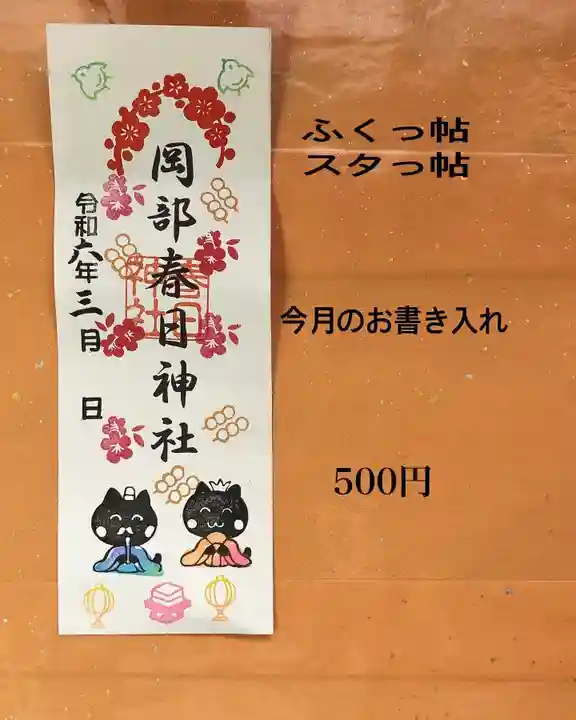 岡部春日神社
令和六年三月 日
春日
神社
ふくっ帖
スタっ帖
今月のお書き入れ
500円